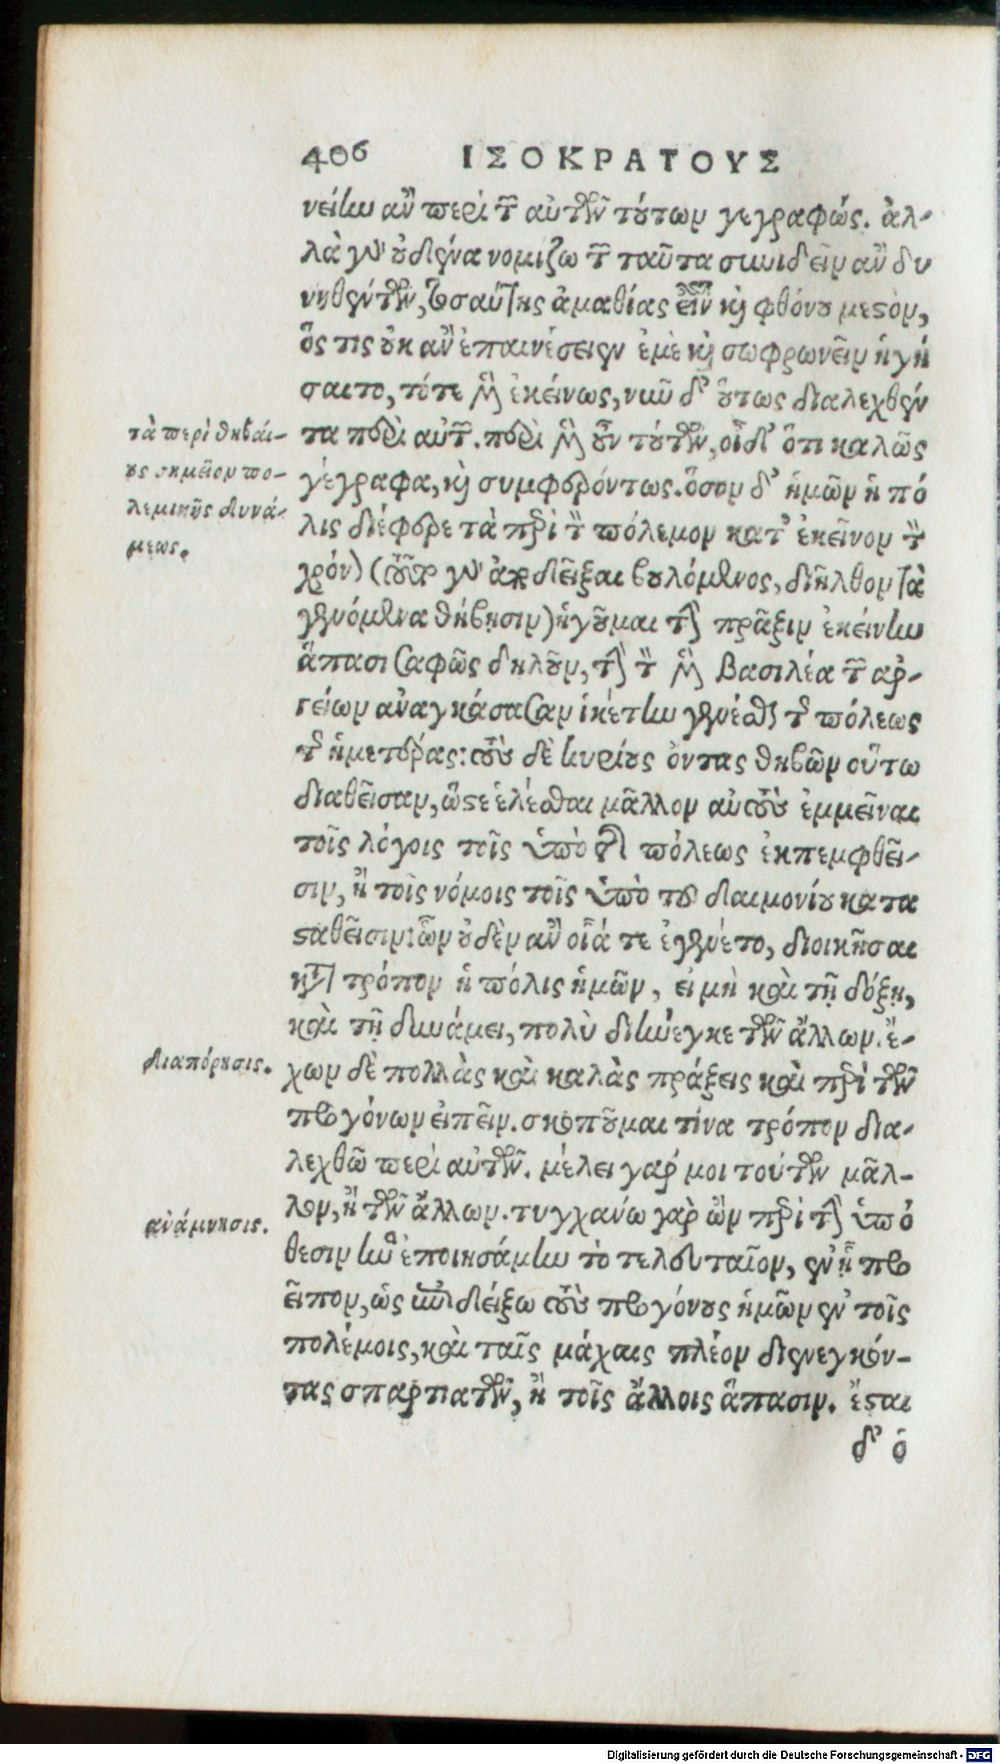 406 ΙΣΟΚΡΑΤΟΥΣ
νείην ἂν περὶ τῶν αὐτῶν τούτων γεγραφώς. ἀλ-
λὰ γὰρ οὐδένα νομίζω τῶν ταῦτα συνιδεῖν ἂν δυ
νηθέντων, τοσαύτης ἀμαθίας εἶναι καὶ φθόνου μεστὸν,
ὅς τις οὐκ ἂν ἐπαινέσειεν ἐμὲ καὶ σωφρωνεῖν ἡγή
σαιτο, τότε μὲν ἐκείνως, νῦν δ' οὕτως διαλεχθέν
τὰ περὶ θηβαί-
ους σημεῖον πο-
λεμικῆς δυνά-
μεως.
τα περὶ αὐτῶν. περὶ μὲν οὖν τούτων, οἶδ' ὅτι καλῶς
γέγραφα, καὶ συμφερόντως. ὅσον δ' ἡμῶν ἡ πό
λις διέφερε τὰ περὶ τὸν πόλεμον κατ' ἐκεῖνον τὸν
χρόνον (τοῦτο γὰρ ἀποδεῖξαι βουλόμενος, διῆλθον τὰ
γενόμενα θήβησιν) ἡγοῦμαι τὴν πρᾶξιν ἐκείνην
ἅπασι σαφῶς δηλοῦν, τὴν τὸν μὲν βασιλέα τῶν ἀρ-
γείων ἀναγκάσασαν ἱκέτην γενέσθαι τῆς πόλεως
τῆς ἡμετέρας: τοὺς δὲ κυρίους ὄντας θηβῶν οὕτω
διαθεῖσαν, ὥστε ἑλέσθαι μᾶλλον αὐτοὺς ἐμμεῖναι
τοῖς λόγοις τοῖς ὑπὸ τῆς πόλεως ἐκπεμφθεῖ-
σιν, ἢ τοῖς νόμοις τοῖς ὑπὸ τοῦ δαιμονίου κατα
σταθεῖσιν: ὧν οὐδὲν ἂν οἷά τε ἐγένετο, διοικῆσαι
κατὰ τρόπον ἡ πόλις ἡμῶν, εἰ μὴ καὶ τῇ δόξῃ,
καὶ τῇ δυνάμει, πολὺ διήνεγκε τῶν ἄλλων. ἔ-
διαπόρησις.
χων δὲ πολλὰς καὶ καλὰς πράξεις καὶ περὶ τῶν
προγόνων εἰπεῖν. σκοποῦμαι τίνα τρόπον δια-
λεχθῶ περὶ αὐτῶν. μέλει γάρ μοι τούτων μᾶλ-
ἀνάμνησις.
λον, ἢ τῶν ἄλλων. τυγχάνω γὰρ ὢν περὶ τὴν ὑπό
θεσιν ἣν ἐποιησάμην τὸ τελευταῖον, ἐν ᾗ προ
εῖπον, ὡς ἐπιδείξω τοὺς προγόνους ἡμῶν ἐν τοῖς
πολέμοις, καὶ ταῖς μάχαις πλέον διενεγκόν-
τας σπαρτιατῶν, ἢ τοῖς ἄλλοις ἅπασιν. ἔσται
δ' ὁ
Digitalisierung gefördert durch die Deutsche Forschungsgemeinschaft - DFG